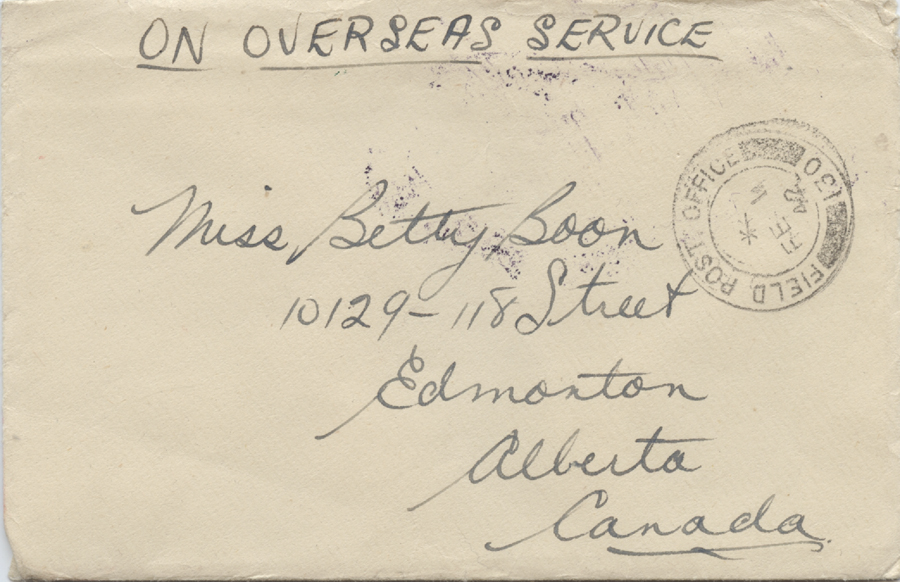 ON OVERSEAS SERVICE
FIELD POST OFFICE
130
*
FE
42
Miss Betty Boon
10129-118 Street
Edmonton
Alberta
Canada.